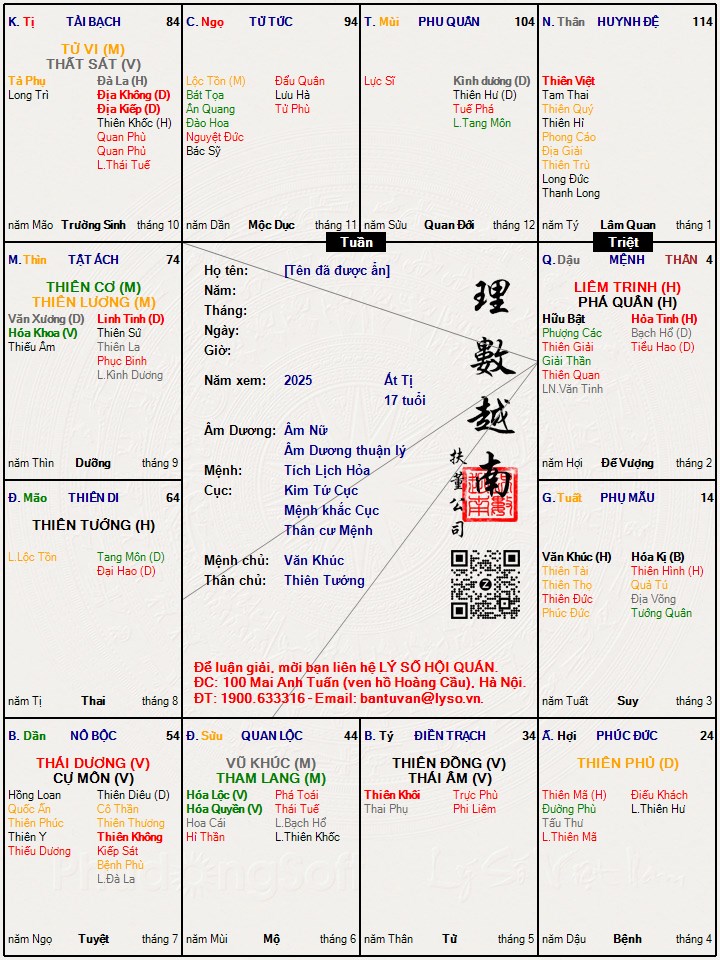 K. Tị TÀI BẠCH 84
TỬ VI (M)
THẤT SÁT (V)
Tả Phụ Đà La (H)
Long Trì Địa Không (D)
Địa Kiếp (D)
Thiên Khốc (H)
Quan Phù
Quan Phủ
L.Thái Tuế
năm Mão Trường Sinh tháng 10
C. Ngọ TỬ TỨC 94
Lộc Tồn (M) Đẩu Quân
Bát Tọa Lưu Hà
Ân Quang Tử Phù
Đào Hoa
Nguyệt Đức
Bác Sỹ
năm Dần Mộc Dục tháng 11
T. Mùi PHU QUÂN 104
Lực Sĩ Kình dương (D)
Thiên Hư (D)
Tuế Phá
L.Tang Môn
năm Sửu Quan Đới tháng 12
N. Thân HUYNH ĐỆ 114
Thiên Việt
Tam Thai
Thiên Quý
Thiên Hỉ
Phong Cáo
Địa Giải
Thiên Trù
Long Đức
Thanh Long
năm Tý Lâm Quan tháng 1
Tuần
Triệt
M. Thìn TẬT ÁCH 74
THIÊN CƠ (M)
THIÊN LƯƠNG (M)
Văn Xương (D) Linh Tinh (D)
Hóa Khoa (V) Thiên Sứ
Thiếu Âm Thiên La
Phục Binh
L.Kình Dương
năm Thìn Dưỡng tháng 9
Họ tên: [Tên đã được ẩn]
Năm:
Tháng:
Ngày:
Giờ:
Năm xem: 2025 Ất Tị
17 tuổi
Âm Dương: Âm Nữ
Âm Dương thuận lý
Mệnh: Tích Lịch Hỏa
Cục: Kim Tứ Cục
Mệnh khắc Cục
Thân cư Mệnh
Mệnh chủ: Văn Khúc
Thân chủ: Thiên Tướng
理數越南
扶董公司
Để luận giải, mời bạn liên hệ LÝ SỐ HỘI QUÁN.
ĐC: 100 Mai Anh Tuấn (ven hồ Hoàng Cầu), Hà Nội.
ĐT: 1900.633316 - Email: bantuvan@lyso.vn.
Q. Dậu MỆNH THÂN 4
LIÊM TRINH (H)
PHÁ QUÂN (H)
Hữu Bật Hỏa Tinh (H)
Phượng Các Bạch Hổ (D)
Thiên Giải Tiểu Hao (D)
Giải Thần
Thiên Quan
LN.Văn Tinh
năm Hợi Đế Vượng tháng 2
Đ. Mão THIÊN DI 64
THIÊN TƯỚNG (H)
L.Lộc Tồn Tang Môn (D)
Đại Hao (D)
năm Tị Thai tháng 8
G. Tuất PHỤ MẪU 14
Văn Khúc (H) Hóa Kị (B)
Thiên Tài Thiên Hình (H)
Thiên Thọ Quả Tú
Thiên Đức Địa Võng
Phúc Đức Tướng Quân
năm Tuất Suy tháng 3
B. Dần NÔ BỘC 54
THÁI DƯƠNG (V)
CỰ MÔN (V)
Hồng Loan Thiên Diêu (D)
Quốc Ấn Cô Thần
Thiên Phúc Thiên Thương
Thiên Y Thiên Không
Thiếu Dương Kiếp Sát
Bệnh Phù
L.Đà La
năm Ngọ Tuyệt tháng 7
Đ. Sửu QUAN LỘC 44
VŨ KHÚC (M)
THAM LANG (M)
Hóa Lộc (V) Phá Toái
Hóa Quyền (V) Thái Tuế
Hoa Cái L.Bạch Hổ
Hỉ Thần L.Thiên Khốc
năm Mùi Mộ tháng 6
B. Tý ĐIỀN TRẠCH 34
THIÊN ĐỒNG (V)
THÁI ÂM (V)
Thiên Khôi Trực Phù
Thai Phụ Phi Liêm
năm Thân Tử tháng 5
Ấ. Hợi PHÚC ĐỨC 24
THIÊN PHỦ (D)
Thiên Mã (H) Điếu Khách
Đường Phù L.Thiên Hư
Tấu Thư
L.Thiên Mã
năm Dậu Bệnh tháng 4